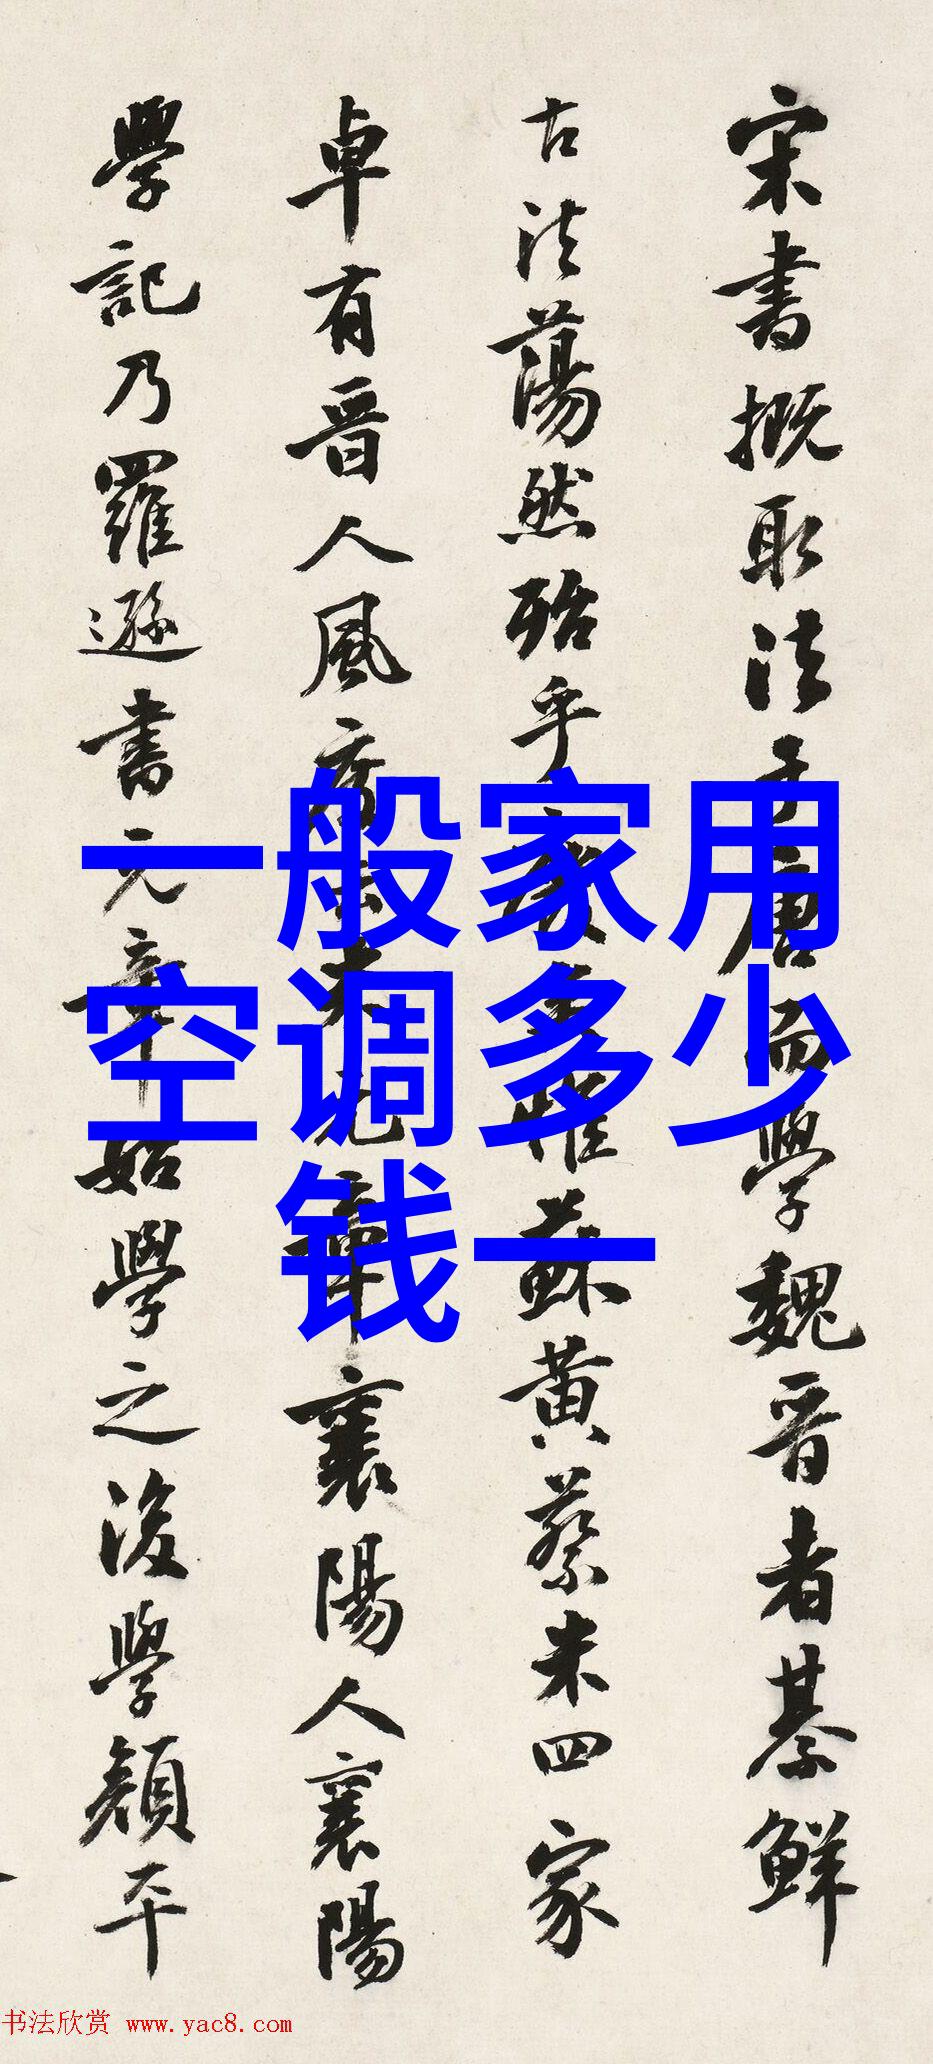 宋書概取法于唐而學魏晉者綦鮮
古法蕩然殆乎惟蘇黃蔡米四家
卓有晉人風度元章襄陽人襄陽
學記乃羅遜書元章始學之後學顏平
一般家用
空调多少
钱一
书法欣赏 www.yac8.com